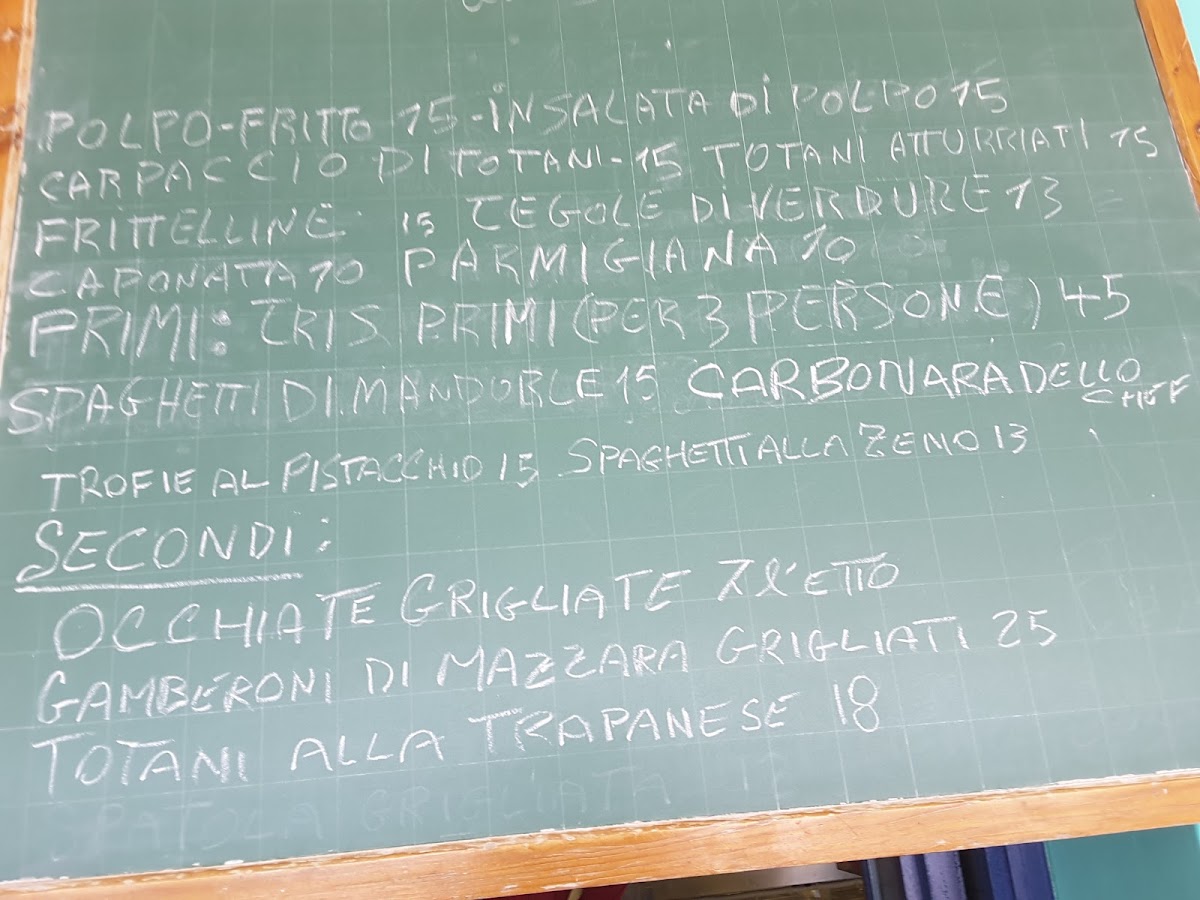 POLPO-FRITTO 15-INSALATA DI POLPO 15
CARPACCIO DI TOTANI-15 TOTANI ATTURRIATI 15
FRITTELLINE 15 TEGOLE DI VERDURE 13
CAPONATA 10 PARMIGIANA 10
PRIMI: TRIS PRIMI (PER 3 PERSONE) 45
SPAGHETTI DI MANDORLE 15 CARBONARA DELLO CHEF
TROFIE AL PISTACCHIO 15 SPAGHETTI ALLA ZENO 13
SECONDI:
OCCHIATE GRIGLIATE 7 L'ETTO
GAMBERONI DI MAZZARA GRIGLIATI 25
TOTANI ALLA TRAPANESE 18
GRIGLIATA